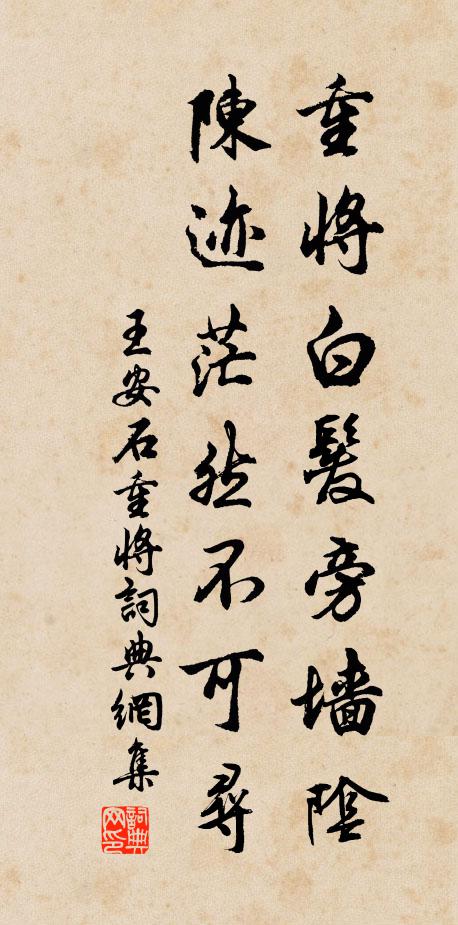 重將白髮旁墻陰
陳迹茫然不可尋
王安石重將詞典網集
詞典网印